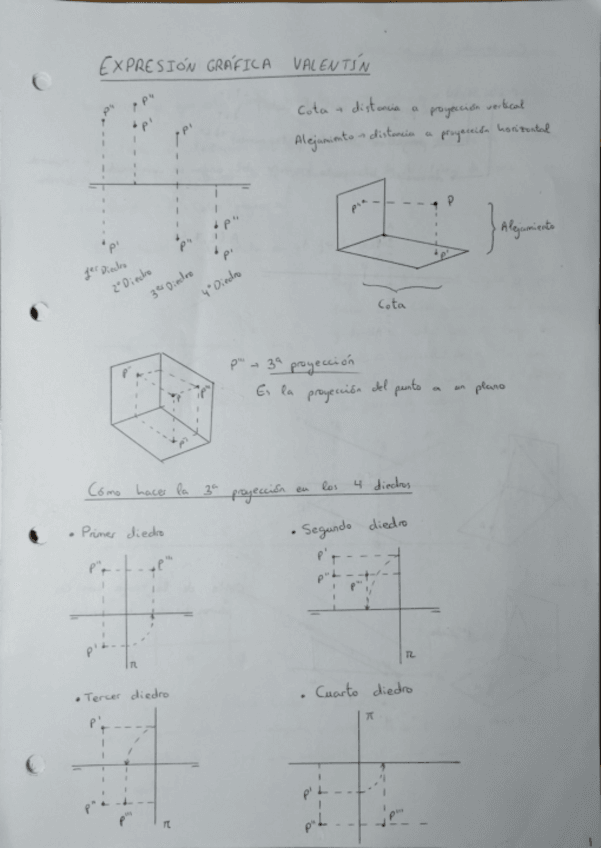 EXPRESIÓN GRÁFICA VALENTÍN
P'' P'' P' P'
Cota → distancia a proyección vertical
Alejamiento → distancia a proyección horizontal
P' P'' P'' P'
1er Diedro 2º Diedro 3er Diedro 4º Diedro
P'' P P'
Alejamiento
Cota
P''' → 3ª proyección
Es la proyección del punto a un plano
P'' P P''' P'
Cómo hacer la 3ª proyección en los 4 diedros
• Primer diedro
• Segundo diedro
P'' P''' P' π
P' P'' P''' π
• Tercer diedro
• Cuarto diedro
P' P'' P''' π
π P' P'' P'''
1